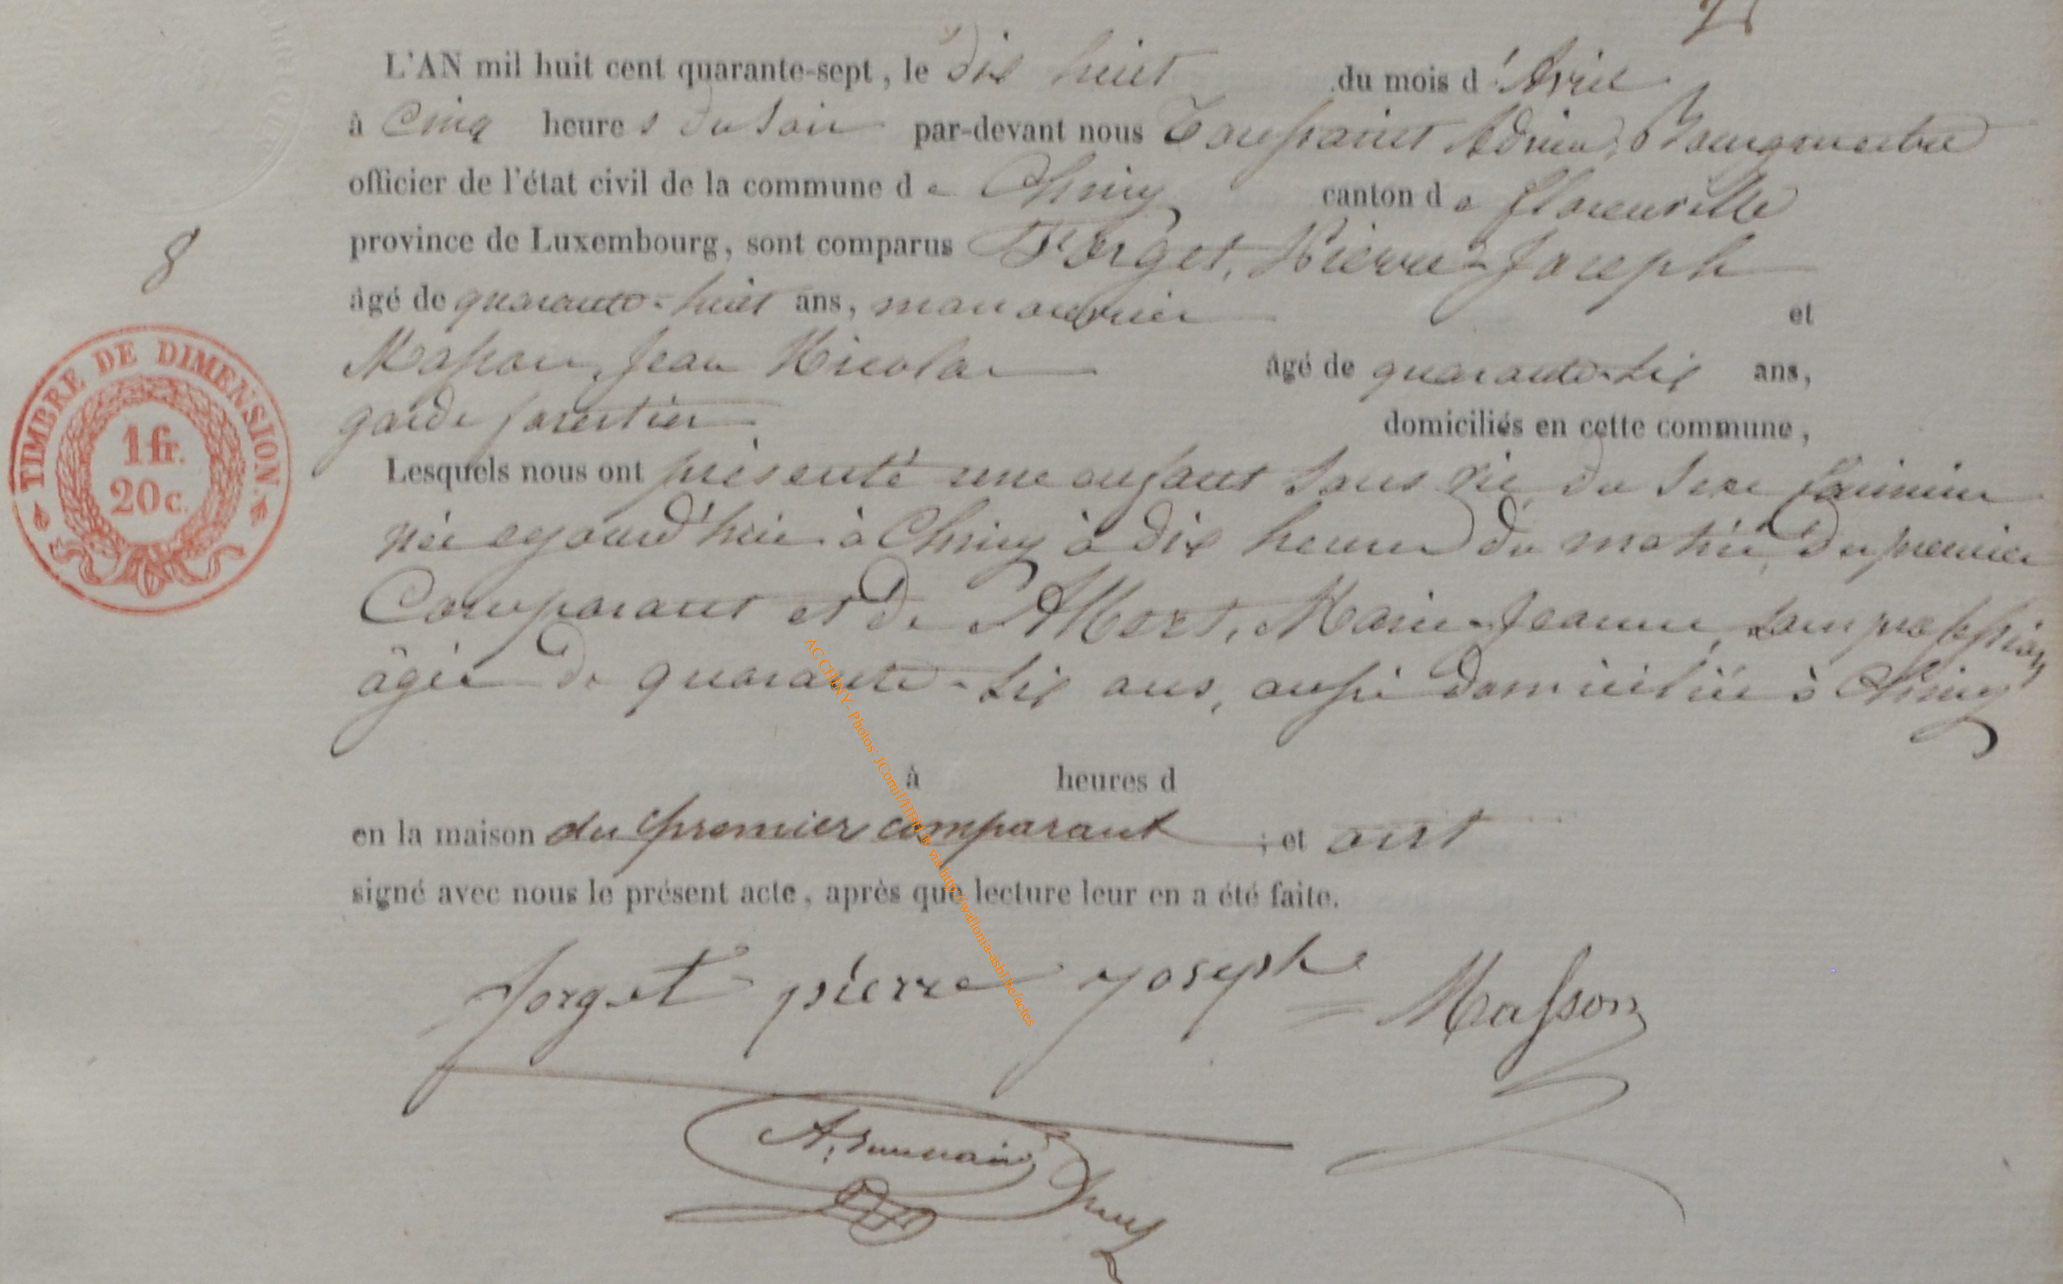 L'AN mil huit cent quarante-sept, le dix huit du mois d'Avril
à Cinq heures du Soir par-devant nous Toussaint Adrien, Bourgmestre
officier de l'état civil de la commune de Chiny canton de florenville
province de Luxembourg, sont comparus Forget, Pierre-Joseph
8
âgé de quarante-huit ans, manouvrier et
Masson, Jean Nicolas âgé de quarante-six ans,
garde forestier domiciliés en cette commune,
TIMBRE DE DIMENSION.
1 fr.
20 c.
Lesquels nous ont présenté une enfant sans vie du sexe féminin
née aujourd'hui à Chiny à dix heures du matin, du premier
Comparant et de Albert, Marie-Jeanne, sans profession,
âgée de quarante-six ans, aussi domiciliée à Chiny
à heures d
en la maison du premier comparant ; et ont
signé avec nous le présent acte, après que lecture leur en a été faite.
forget pierre joseph Masson
AC CHINY - Photos